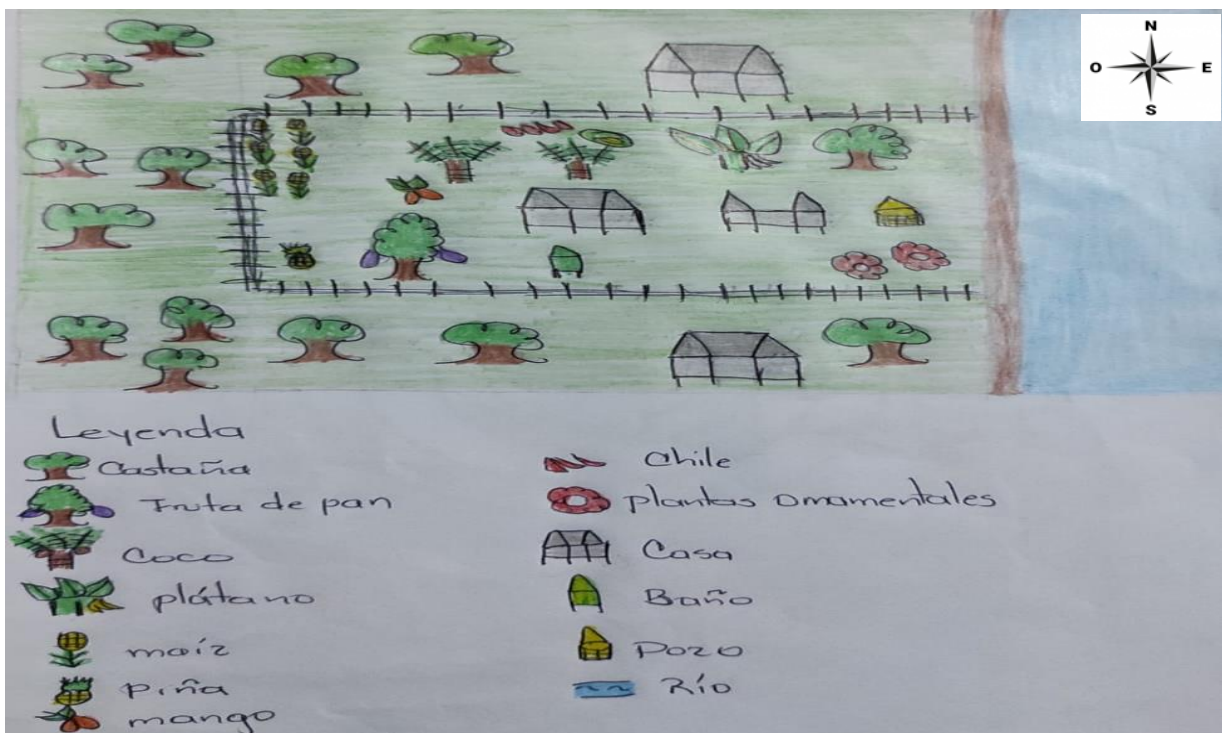 N
O E
S
Leyenda
Castaña
Fruta de pan
Coco
plátano
maíz
Piña
mango
Chile
plantas ornamentales
Casa
Baño
Pozo
Río